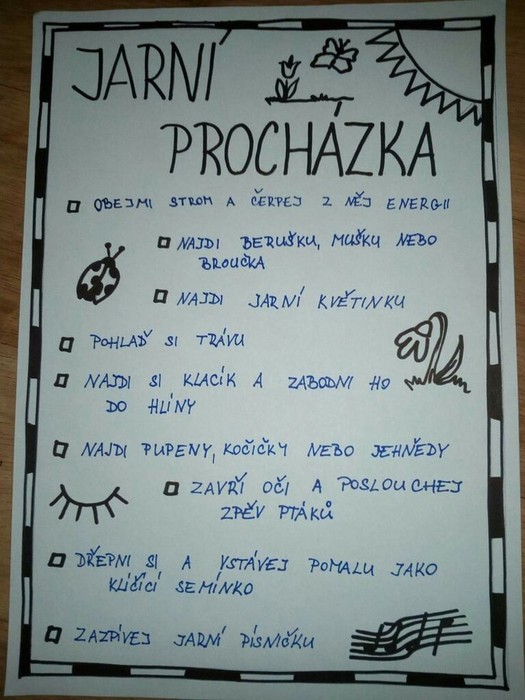 JARNÍ
PROCHÁZKA
OBEJMI STROM A ČERPEJ Z NĚJ ENERGII
NAJDI BERUŠKU, MUŠKU NEBO
BROUČKA
NAJDI JARNÍ KVĚTINKU
POHLAĎ SI TRÁVU
NAJDI SI KLACÍK A ZABODNI HO
DO HLÍNY
NAJDI PUPENY, KOČIČKY NEBO JEHNĚDY
ZAVŘI OČI A POSLOUCHEJ
ZPĚV PTÁKŮ
DŘEPNI SI A VSTÁVEJ POMALU JAKO
KLÍČÍCÍ SEMÍNKO
ZAZPÍVEJ JARNÍ PÍSNIČKU